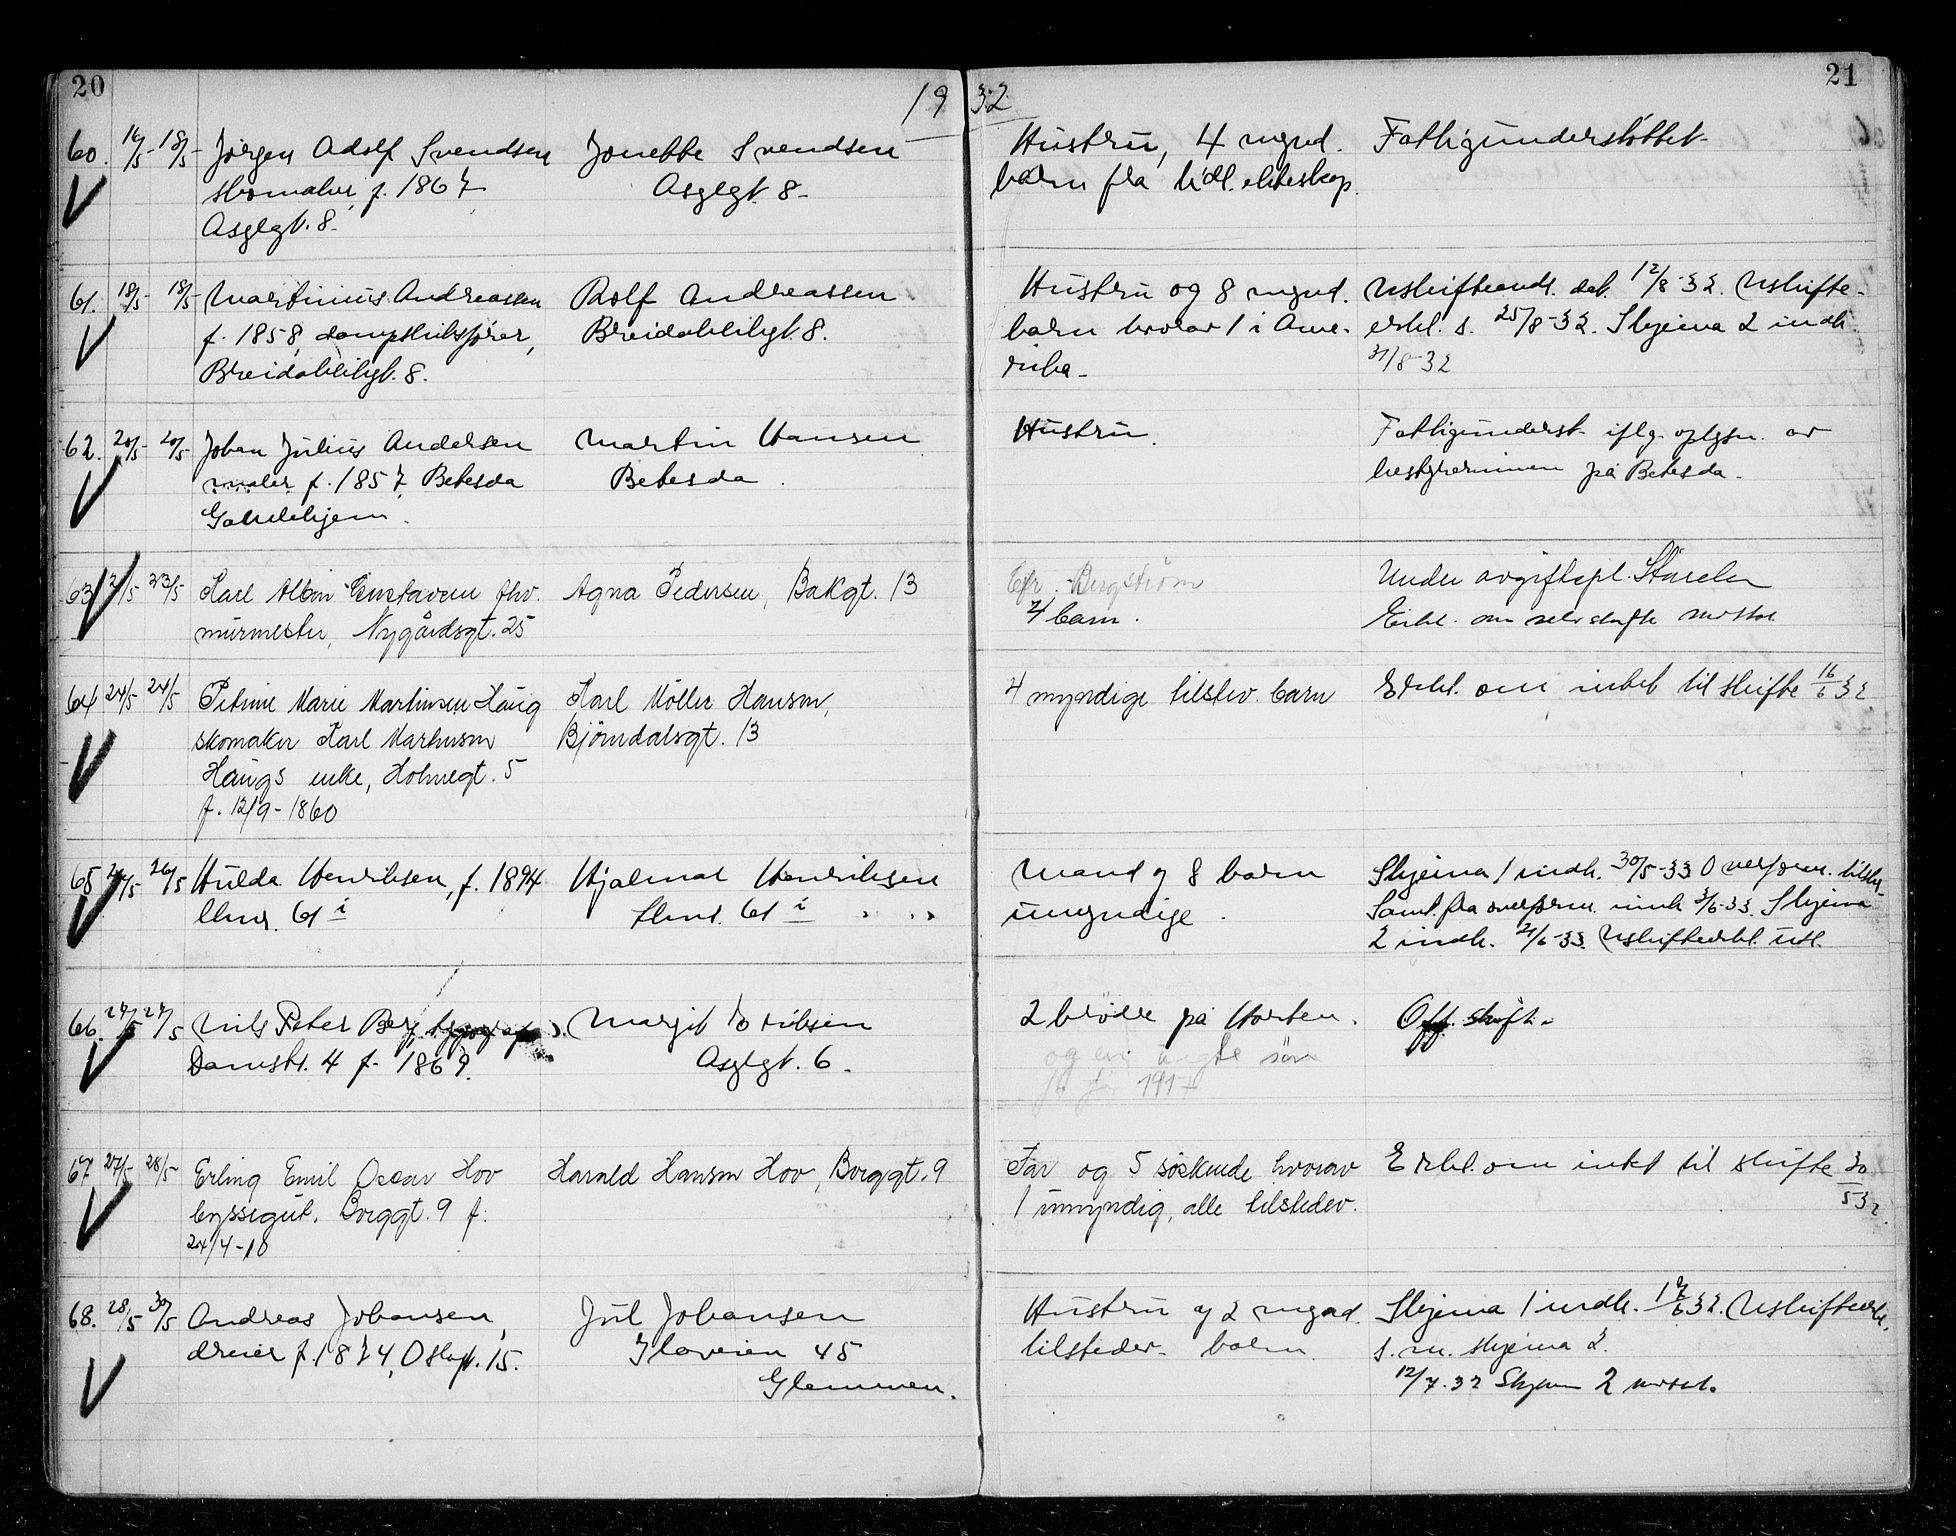 20
21
19 32
60. 16/5 - 18/5 - Jörgen Adolf Svendsen
skomaker, f. 1867
Asylgt. 8.
Jonette Svendsen
Asylgt. 8 -
Hustru, 4 mynd.
barn fra tidl. ekteskap.
Fattigunderstöttet
61. 18/5 - 18/5 - Martinius Andreassen
f. 1858, dampskibsfører,
Breidablikgt. 8.
Rolf Andreassen
Breidablikgt. 8.
Hustru og 8 mynd.
barn hvorav 1 i Ame-
rika -
Uskifteandr. dat. 12/8-32. Uskifte-
erkl. s. 25/8-32. Skjema 2 indk.
31/8-32
62. 20/5 - 20/5 - Johan Julius Andersen
maler f. 1857, Betesda
Gamlehjem.
Martin Hansen
Betesda.
Hustru.
Fattigunderst. iflg. oplysn. av
bestyrerinnen på Betesda.
63 21/5 23/5 Karl Albin Gustavsen fhv.
murmester, Nygårdsgt. 25
Agna Pedersen, Bakgt. 13
Efr. Bergström
4 barn.
Under avgiftspl. Størrelse
Erkl. om selvskifte mottat
64 24/5 24/5 Petrine Marie Martinsen Haug
skomaker Karl Martinsen
Haugs enke, Holmegt. 5
f. 12/9 - 1860
Karl Möller Hansen,
Bjørndalsgt. 13
4 myndige tilstev. barn
Erkl. om intet til skifte 16/6 32
65 26/5 26/5 Hulda Henriksen, f. 1894
61 i
Hjalmar Henriksen
61 i
Mand og 8 barn
umyndige.
Skjema 1 indk. 30/5-33 Overform. tilskr.
Samt. fra overform. innk 3/6-33. Skjema
2 indk. 21/6-33. Uskifteerkl. utst.
66. 27/5 27/5 Nils Peter Berg, typograf
Damstr. 4 f. 1869.
Margit Eriksen
Asylgt. 6.
2 brödre på Horten.
og en uegte sön
1917
Off. skifte.
67 27/5 28/5 Erling Emil Oscar Hov
byssegut, Borggt. 9 f.
24/4 - 10
Harald Hansen Hov, Borggt. 9
Far og 5 söskende hvorav
1 umyndig, alle tilstedev.
Erkl. om intet til skifte 30/5 32.
68. 28/5 30/5 Andreas Johansen,
dreier f. 1874, Oslogt. 15.
Jul Johansen
Glemmen.
45
Hustru og 2 mynd.
tilstedev. barn
Skjema 1 indk. 17/6 32. Uskifteerkl.
s. m. skjema 2.
12/7.32 Skjem 2 mottat.